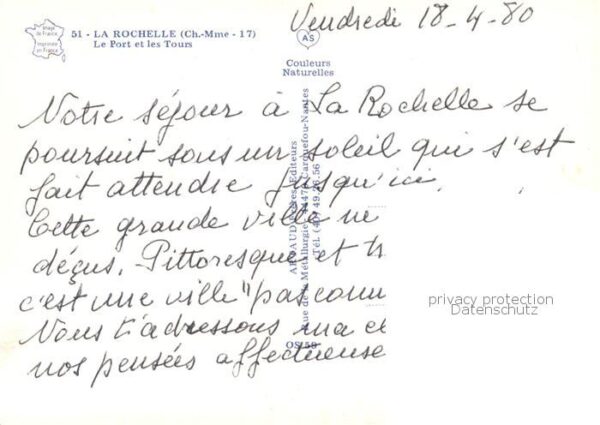 Image
de France
Imprimée
en France
51 - LA ROCHELLE (Ch.-Mme - 17)
Le Port et les Tours
Vendredi 18-4-80
AS
Couleurs
Naturelles
Notre séjour à La Rochelle se
poursuit sous un soleil qui s'est
fait attendre jusqu'ici.
Cette grande ville ne
déçus. Pittoresque et tr
c'est une ville "pas comm
Nous t'adressons ma
nos pensées affectueuse
Editeurs
Rue de la Métallurgie
Carquefou-Nantes
Tél. (40) 49.26.56
OS 59
privacy protection
Datenschutz